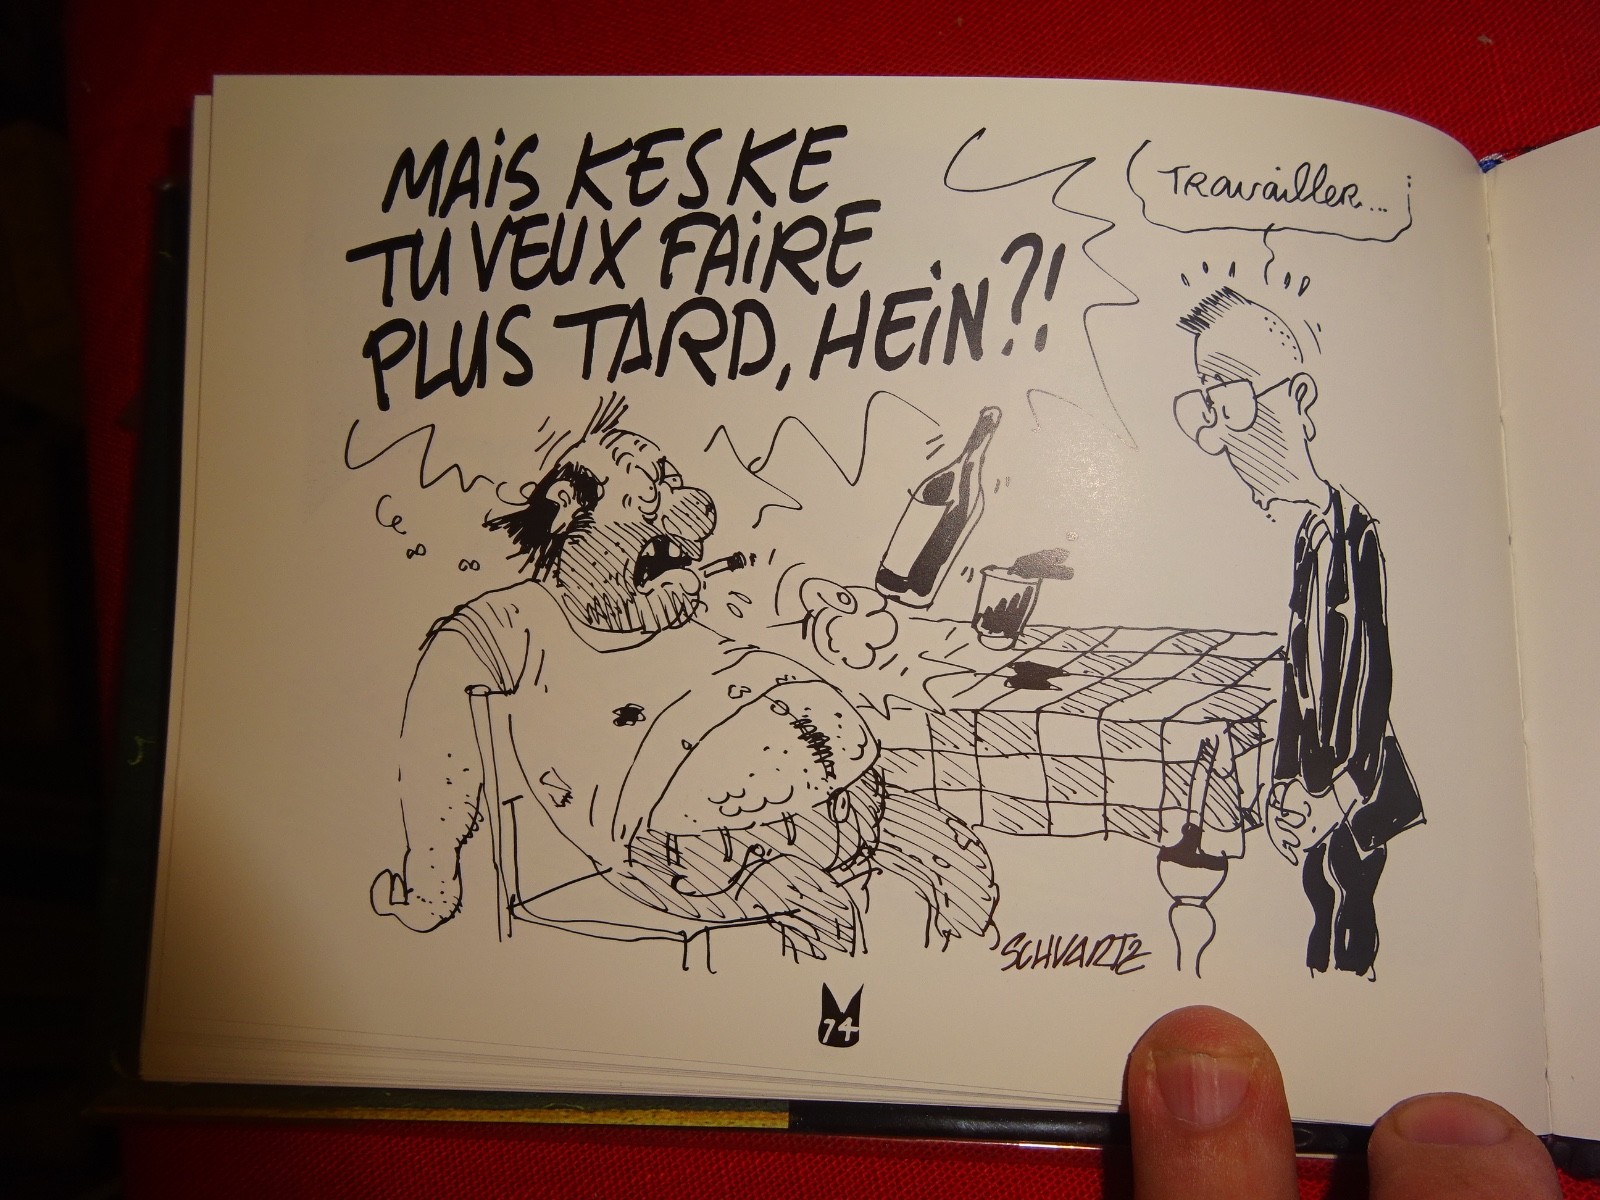 MAiS KESKE
TU VEUX FAiRE
PLUS TARD, HEiN?!
TRavailler...
SCHVARTZ
74